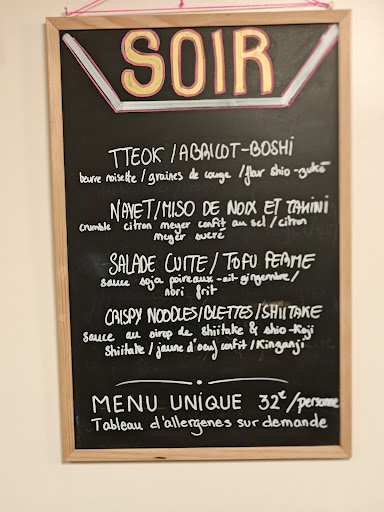 SOIR
TTEOK / ABRICOT-BOSHI
beurre noisette / graines de courge / fleur shio-zuke
NAVET / MISO DE NOIX ET TAHINI
crumble citron meyer confit au sel / citron
meyer sucré
SALADE CUITE / TOFU FERME
sauce soja poireaux-ail-gingembre /
nori frit
CRISPY NOODLES / BLETTES / SHIITAKE
sauce au sirop de shiitake & shio-koji
Shiitake / jaune d'oeuf confit / Kinganji
MENU UNIQUE 32€ / personne
Tableau d'allergenes sur demande